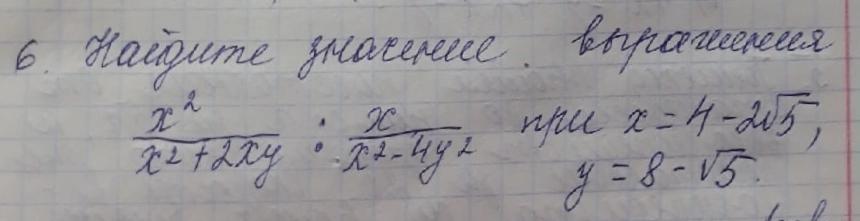 6. Найдите значение выражения
x²/(x²+2xy) : x/(x²-4y²) при x=4-2√5,
y=8-√5.